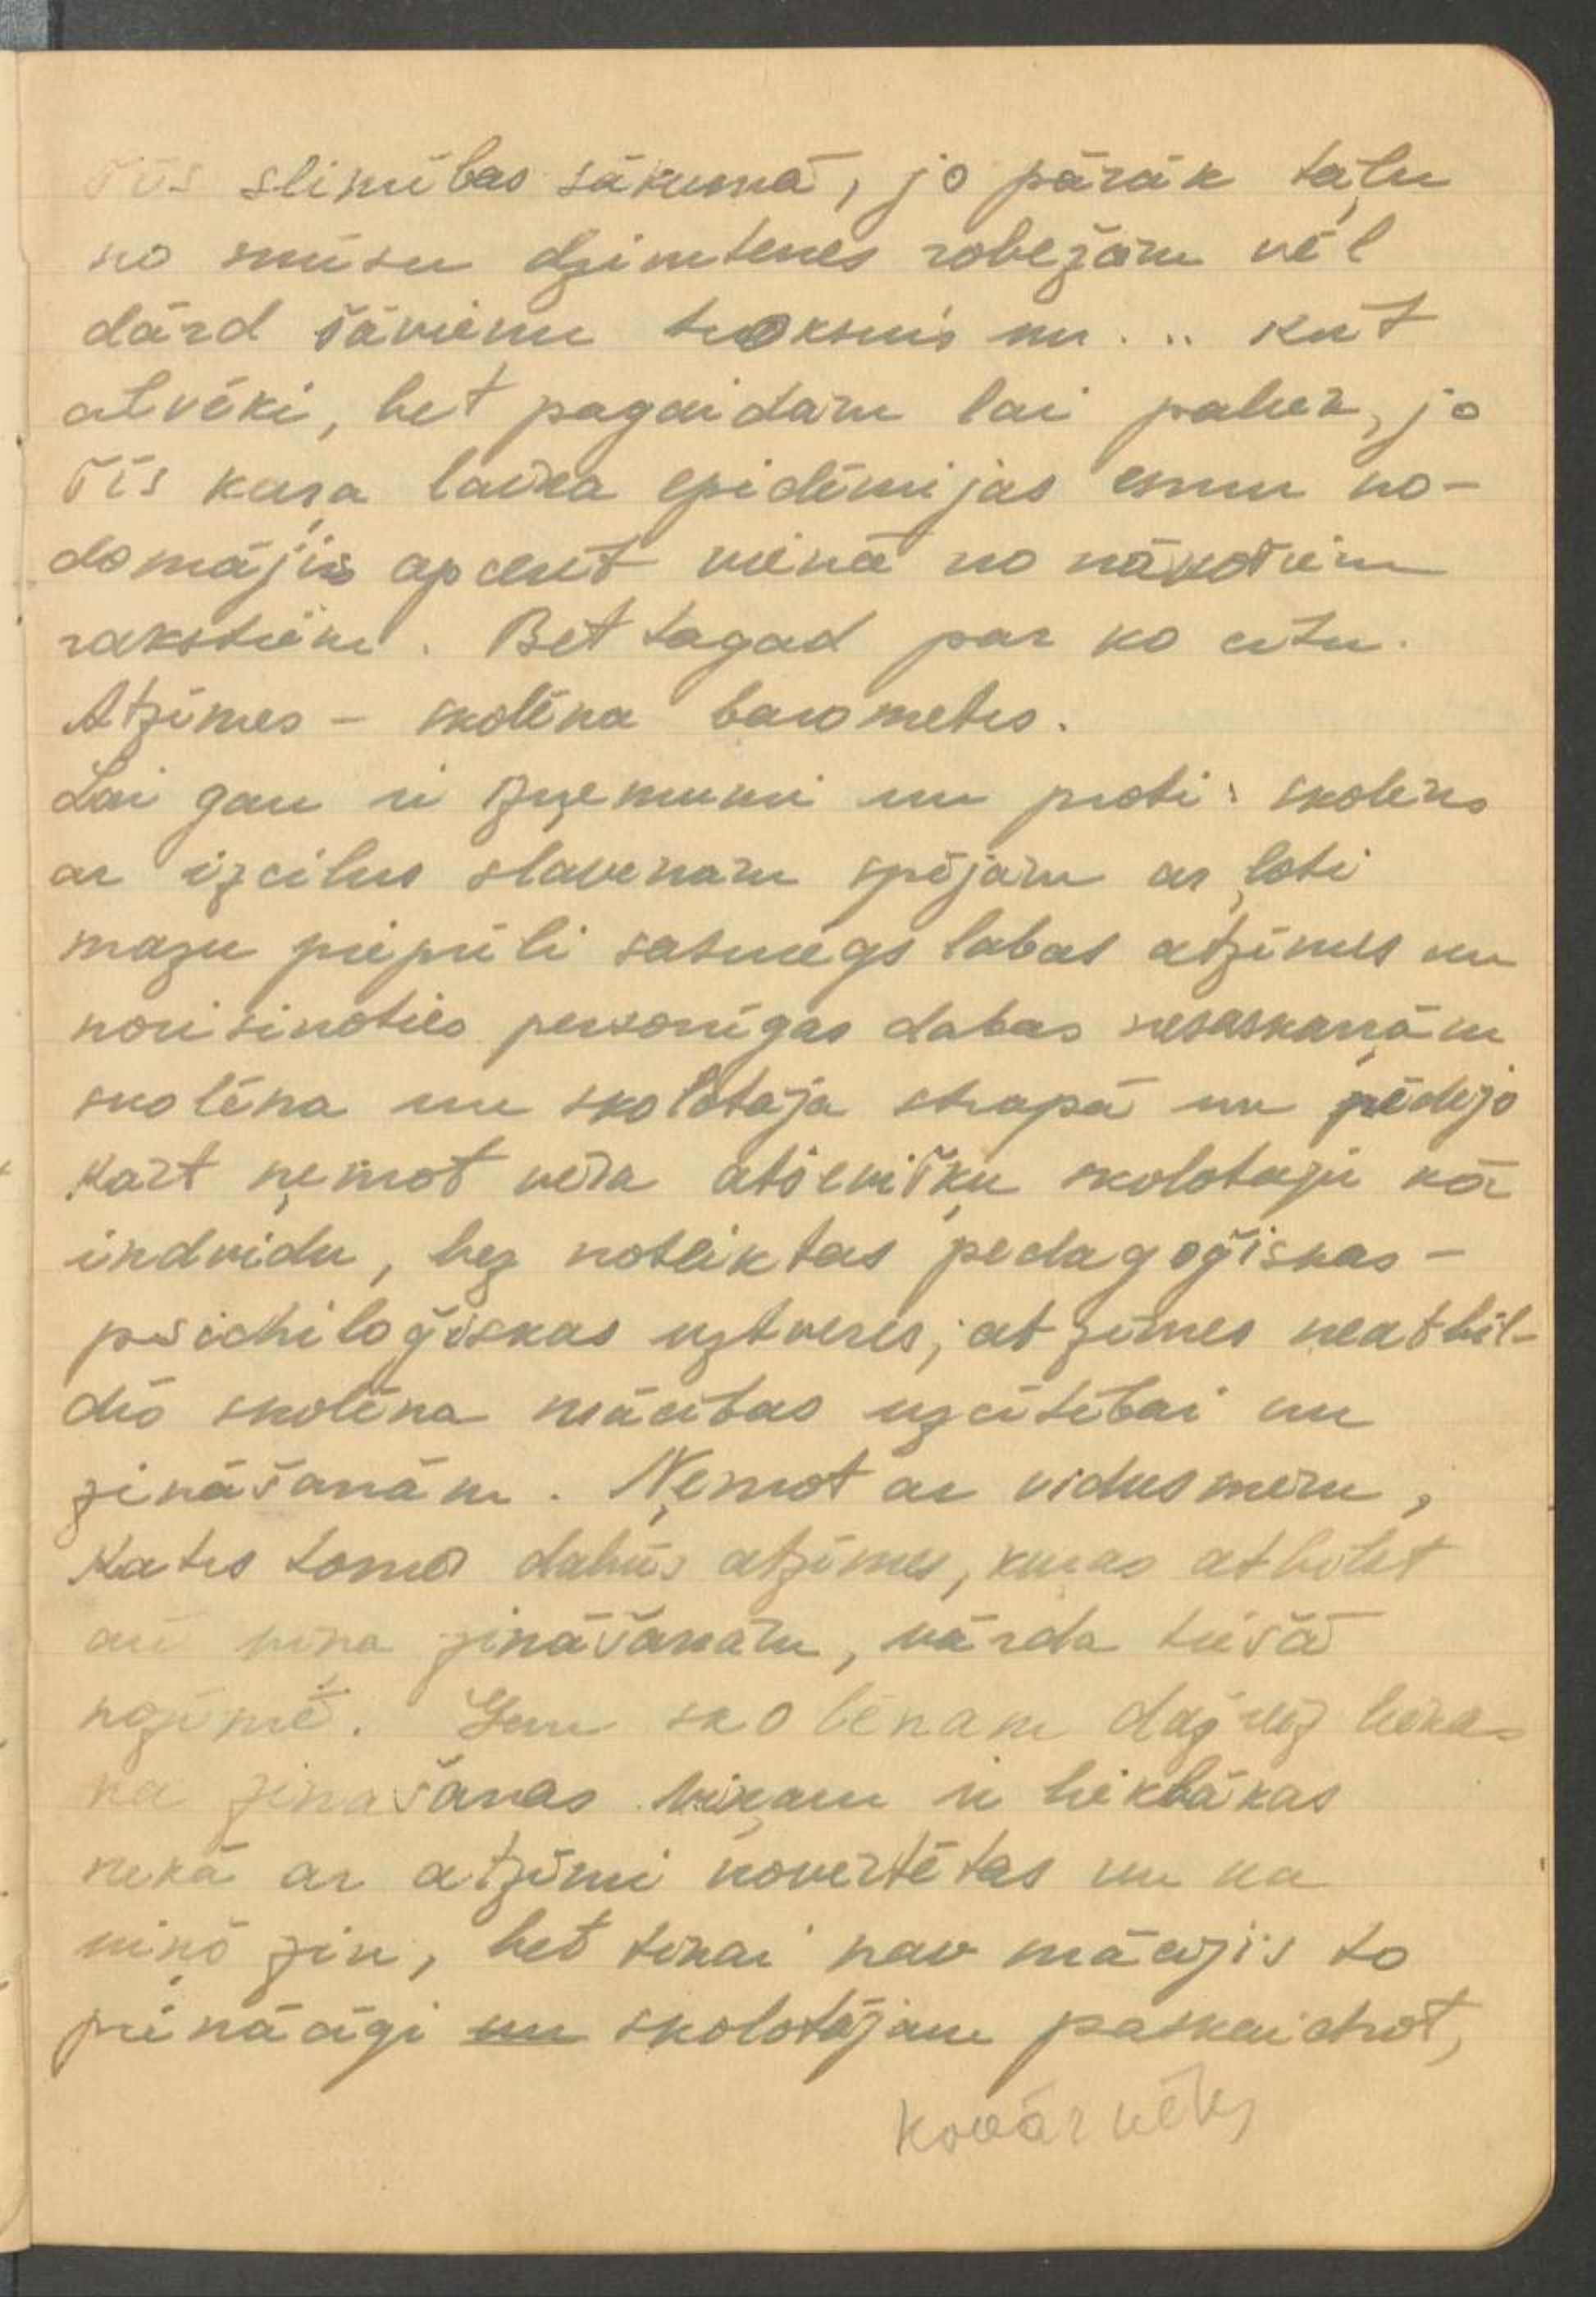 šīs slimības sākumā, jo pārāk tāļu
no mūsu dzimtenes robežām vēl
dārd šāvienu troksnis un ... krīt
cilvēki, bet pagaidām lai paliek, jo
šīs kaŗa laika epidēmijas esmu no-
domājis apcerēt vienā no nākošiem
rakstiem. Bet tagad par ko citu.
Atzīmes – skolēna barometrs.
Lai gan ir izņemumi un proti: skolēns
ar izcilus slavenām spējām ar ļoti
mazu piepūli sasniegs labas atzīmes un
norisinoties personīgas dabas nesaskaņām
skolēna un skolotāja starpā un pēdējo
kārt ņemot vērā atsevišķu skolotāju kā
indvidu, bez noteiktas pedagoģiskas –
psichiloģiskas uztveres, atzīmes neatbil-
dīs skolēna mācības uzcītībai un
zināšanām. Ņemot ar vidusmēru,
katrs tomēr dabūs atzīmes, kuras atbilst
arī viņa zināšanām, vārda tiešā
nozīmē. Gan skolēnam dažreiz liekas
ka zināšanas viņam ir lieklākas
nekā ar atzīmi novērtētas un ka
viņš zin, bet tikai nav mācējis to
pienācīgi un skolotājam paskaidrot,